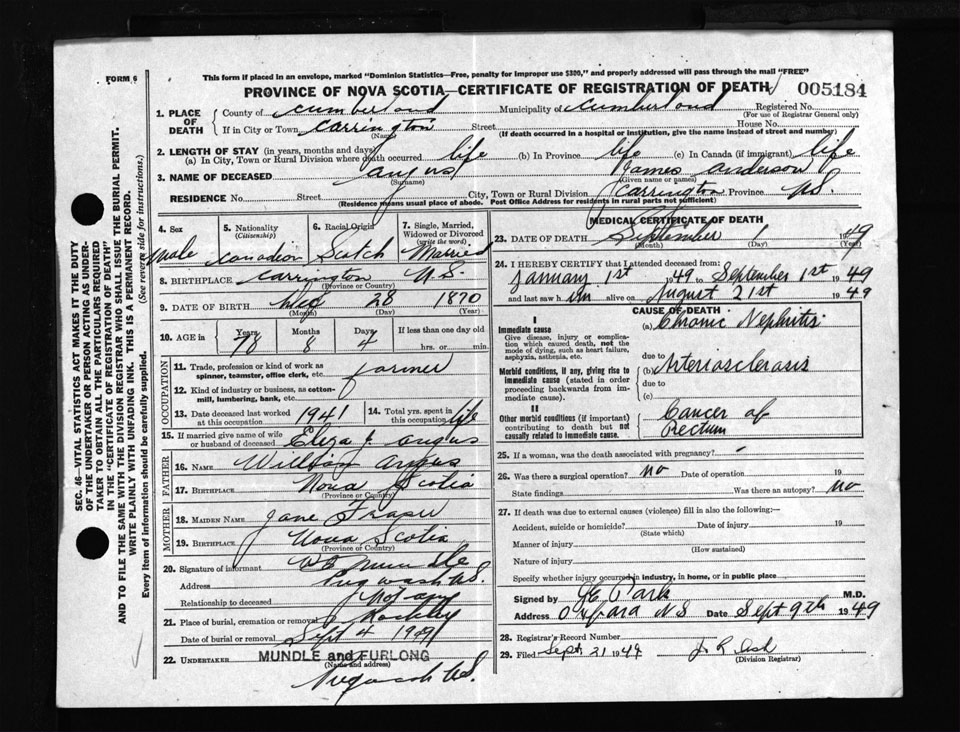 FORM 6
This form if placed in an envelope, marked "Dominion Statistics—Free, penalty for improper use $300," and properly addressed will pass through the mail "FREE"
PROVINCE OF NOVA SCOTIA—CERTIFICATE OF REGISTRATION OF DEATH 005184
1. PLACE OF DEATH County of Cumberland Municipality of Cumberland Registered No.
(For use of Registrar General only)
If in City or Town Carrington Street House No.
(Name) (If death occurred in a hospital or institution, give the name instead of street and number)
2. LENGTH OF STAY (in years, months and days)
(a) In City, Town or Rural Division where death occurred life (b) In Province life (c) In Canada (if immigrant) life
3. NAME OF DECEASED Angus James Anderson
(Surname) (Given name or names)
RESIDENCE No. Street City, Town or Rural Division Carrington Province N.S.
(Residence means usual place of abode. Post Office Address for residents in rural parts not sufficient)
4. Sex Male
5. Nationality (Citizenship) Canadian
6. Racial Origin Scotch
7. Single, Married, Widowed or Divorced (write the word) Married
8. BIRTHPLACE Carrington N.S.
(Province or Country)
9. DATE OF BIRTH 28 1870
(Month) (Day) (Year)
10. AGE in Years 78 Months 8 Days 4 If less than one day old hrs. or min.
OCCUPATION
11. Trade, profession or kind of work as spinner, teamster, office clerk, etc. Farmer
12. Kind of industry or business, as cotton-mill, lumbering, bank, etc.
13. Date deceased last worked at this occupation 1941
14. Total yrs. spent in this occupation life
15. If married give name of wife or husband of deceased Eliza J. Angus
FATHER
16. NAME William Angus
17. BIRTHPLACE Nova Scotia
(Province or Country)
MOTHER
18. MAIDEN NAME Jane Fraser
19. BIRTHPLACE Nova Scotia
(Province or Country)
20. Signature of informant Mundle
Address Pugwash N.S.
Relationship to deceased Not any
21. Place of burial, cremation or removal
Date of burial or removal Sept 4 1949
22. UNDERTAKER MUNDLE and FURLONG
(Name and address)
Pugwash N.S.
MEDICAL CERTIFICATE OF DEATH
23. DATE OF DEATH September 1 1949
(Month) (Day) (Year)
24. I HEREBY CERTIFY that I attended deceased from:
January 1st 1949 to September 1st 1949
and last saw him alive on August 21st 1949
CAUSE OF DEATH
I
Immediate cause (a) Chronic Nephritis
Give disease, injury or complication which caused death, not the mode of dying, such as heart failure, asphyxia, asthenia, etc.
due to
Morbid conditions, if any, giving rise to immediate cause (stated in order proceeding backwards from immediate cause). (b) Arteriosclerosis
due to
(c)
II
Other morbid conditions (if important) contributing to death but not causally related to immediate cause. Cancer of Rectum
25. If a woman, was the death associated with pregnancy?
26. Was there a surgical operation? no Date of operation 19
State findings Was there an autopsy? no
27. If death was due to external causes (violence) fill in also the following:—
Accident, suicide or homicide? Date of injury 19
(State which)
Manner of injury
(How sustained)
Nature of injury
Specify whether injury occurred in industry, in home, or in public place
Signed by M.D.
Address Oxford N.S Date Sept 9th 1949
28. Registrar's Record Number
29. Filed Sept 21 1949
(Division Registrar)
SEC. 46—VITAL STATISTICS ACT MAKES IT THE DUTY
OF THE UNDERTAKER OR PERSON ACTING AS UNDER-
TAKER TO OBTAIN ALL THE PARTICULARS REQUIRED
IN THE "CERTIFICATE OF REGISTRATION OF DEATH"
AND TO FILE THE SAME WITH THE DIVISION REGISTRAR WHO SHALL ISSUE THE BURIAL PERMIT.
WRITE PLAINLY WITH UNFADING INK. THIS IS A PERMANENT RECORD.
Every item of information should be carefully supplied. (See reverse side for instructions.)